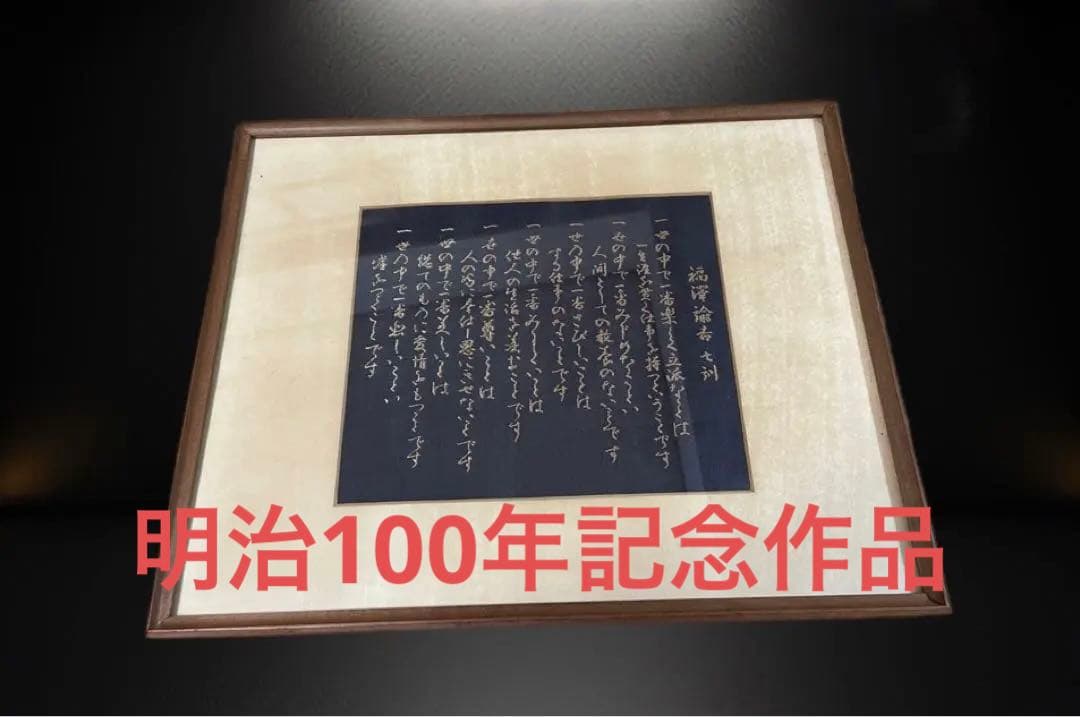 福澤諭吉 七訓
一世の中で一番楽しく立派なことは
一生涯を貫く仕事を持つということです
一世の中で一番みじめなことは
人間としての教養のないことです
一世の中で一番さびしいことは
する仕事のないことです
一世の中で一番みにくいことは
他人の生活を羨むことです
一世の中で一番尊いことは
人の為に奉仕し恩にきせないことです
一世の中で一番美しいことは
総てのものに愛情をもつことです
一世の中で一番悲しいことは
嘘をつくことです
明治100年記念作品